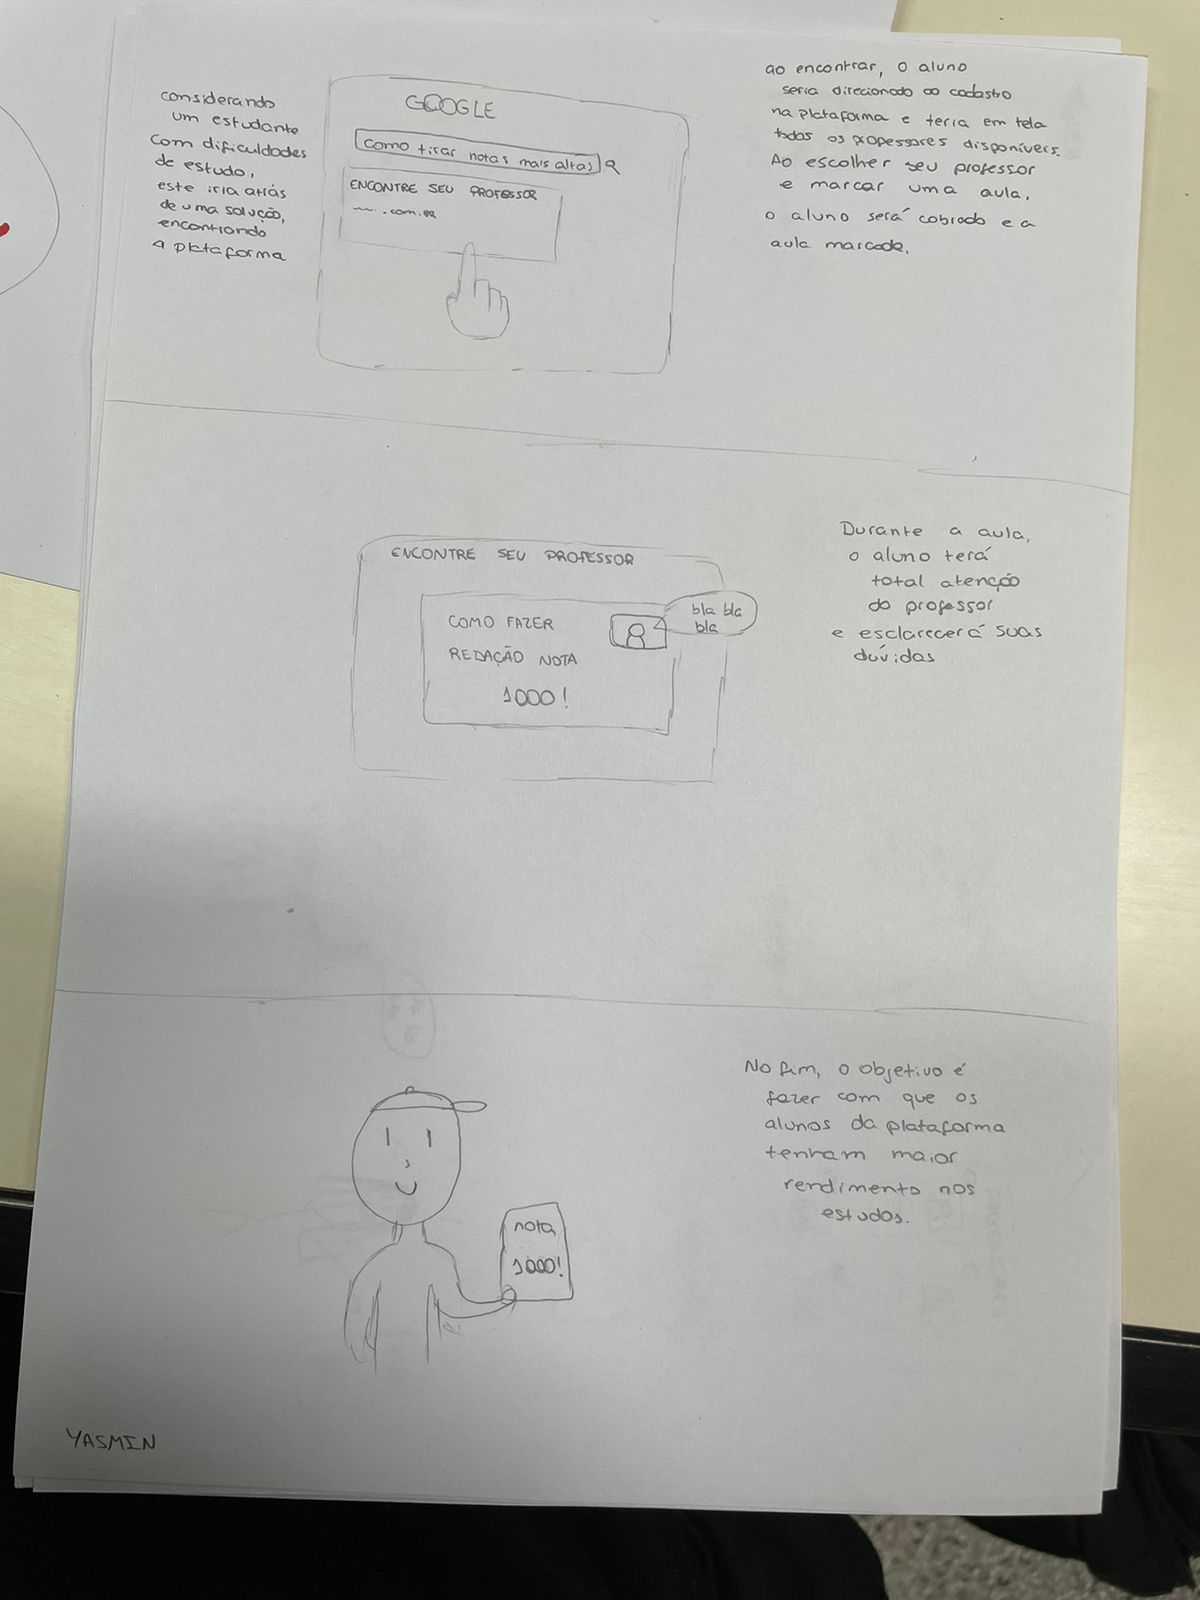 considerando
um estudante
com dificuldades
de estudo,
este iria atrás
de uma solução,
encontrando
a plataforma
GOOGLE
como tirar notas mais altas
ENCONTRE SEU PROFESSOR
.com.br
ao encontrar, o aluno
seria direcionado ao cadastro
na plataforma e teria em tela
todos os professores disponívers.
Ao escolher seu professor
e marcar uma aula,
o aluno será cobrado e a
aula marcada.
ENCONTRE SEU PROFESSOR
COMO FAZER
REDAÇÃO NOTA
1000!
bla bla
bla
Durante a aula,
o aluno terá
total atenção
do professor
e esclarecerá suas
dúvidas.
nota
1000!
No fim, o objetivo é
fazer com que os
alunos da plataforma
tenham maior
rendimento nos
estudos.
YASMIN